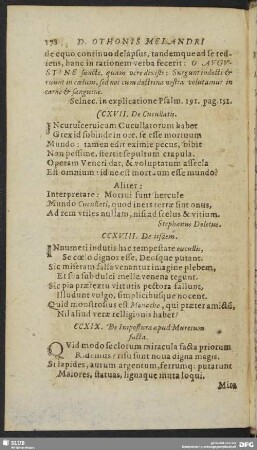 178 D. OTHONIS MELANDRI
de equo continuo delapsus, tandemque ad se redi-
tens, hanc in rationem verba fecerit: O AVGV-
STINE sancte, quam verè dixisti: Surgunt indocti &
rapiunt in cœlum, sed nos cum doctrina nostra volutamur in
carne & sanguine.
Selnec. in explicatione Psalm. 191. pag. 152.
CCXVII. De Cucullatis.
Incurvicervicum Cucullatorum habet
Grex id subinde in ore, se esse mortuum
Mundo: tamen edit eximiè pecus, bibit
Non pessimè, stertit sepultum crapula.
Operam Veneri dat, & voluptatum assecla
Est omnium: id ne est mortuum esse mundo?
Aliter:
Interpretare: Mortui sunt hercule
Mundo Cucullati, quod iners terræ sint onus,
Ad rem vtiles nullam, nisi ad scelus & vitium.
Stephanus Doletus.
CCXVIII. De iisdem.
INnumeri indutis hac tempestate cucullis,
Se cœlo dignos esse, Deosque putant.
Sic miseram fallis venantur imagine plebem,
Et sua sub dulci melle venena tegunt.
Sic pia prætextu virtutis pectora fallunt,
Illudunt vulgo, simplicibusque nocent.
Quid monstrosius est Monacho, qui præter amictũ,
Nil aliud veræ relligionis habet?
CCXIX. De Impostura apud Muretum
facta.
QVid modo seclorum miracula facta priorum
Ridemus? risu sunt noua digna magis.
Si lapides, aurum argentum, ferrumq; putarunt
Maiores, statuas, lignaque muta loqui.
Mira